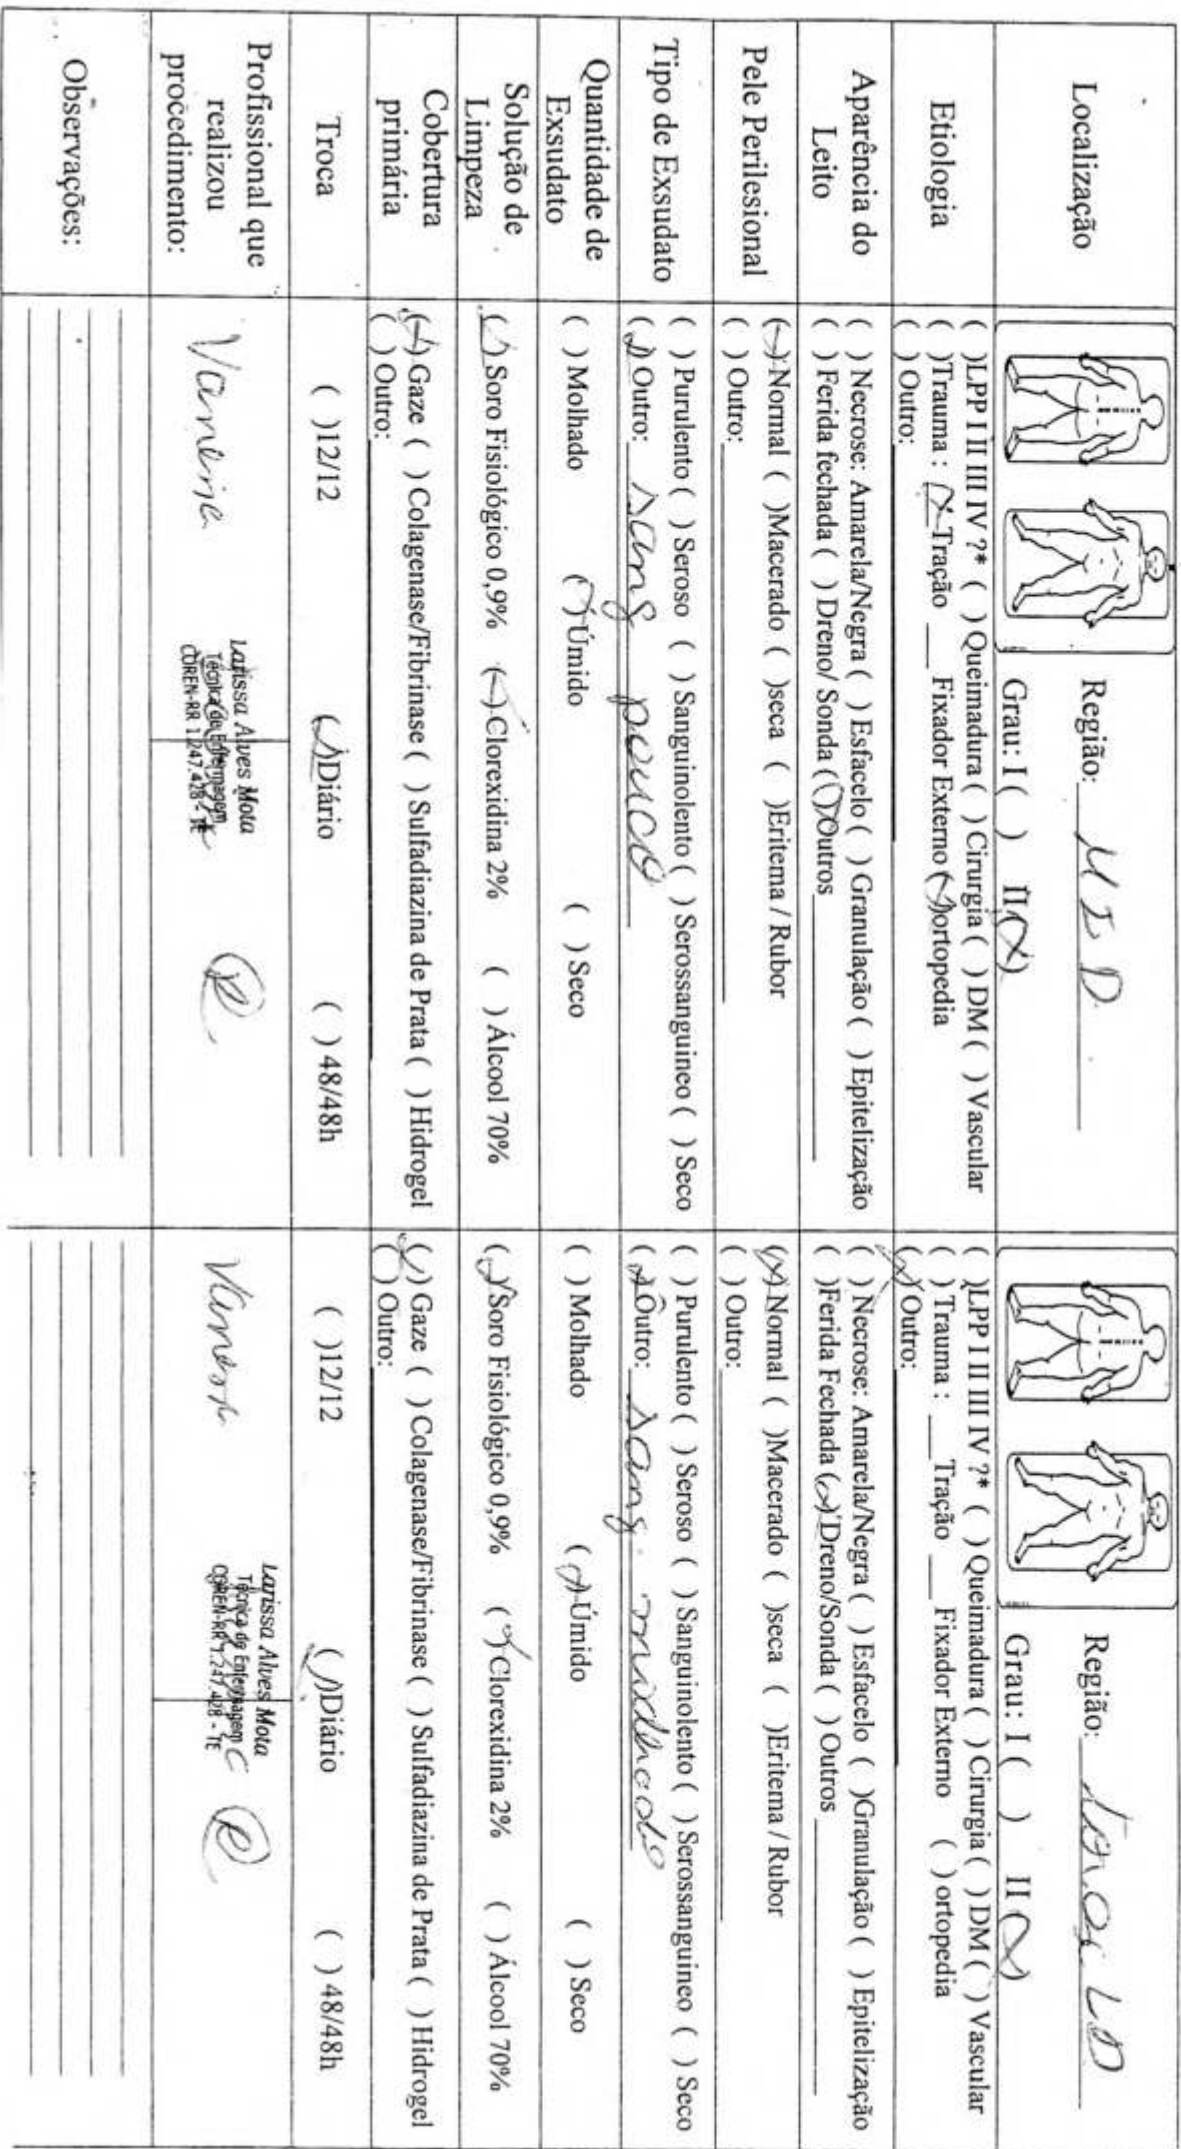 Localização
Região: MID
Grau: I ( ) II (X)
Região: Tórax LD
Grau: I ( ) II (X)
Etiologia
( )LPP I II III IV ?* ( ) Queimadura ( ) Cirurgia ( ) DM ( ) Vascular
( )Trauma : (X Tração ___ Fixador Externo (X)ortopedia
( ) Outro:
( )LPP I II III IV ?* ( ) Queimadura ( ) Cirurgia ( ) DM ( ) Vascular
( ) Trauma : ___ Tração ___ Fixador Externo ( ) ortopedia
(X) Outro:
Aparência do
Leito
( ) Necrose: Amarela/Negra ( ) Esfacelo ( ) Granulação ( ) Epitelização
( ) Ferida fechada ( ) Dreno/ Sonda (X)Outros
( ) Necrose: Amarela/Negra ( ) Esfacelo ( )Granulação ( ) Epitelização
( )Ferida Fechada (X) Dreno/Sonda ( ) Outros
Pele Perilesional
(X)Normal ( )Macerado ( )seca ( )Eritema / Rubor
( ) Outro:
(X)Normal ( )Macerado ( )seca ( )Eritema / Rubor
( ) Outro:
Tipo de Exsudato
( ) Purulento ( ) Seroso ( ) Sanguinolento ( ) Serossanguineo ( ) Seco
(X) Outro: sang pouco
( ) Purulento ( ) Seroso ( ) Sanguinolento ( ) Serossanguineo ( ) Seco
(X) Outro: sang.
Quantidade de
Exsudato
( ) Molhado (X) Úmido ( ) Seco
( ) Molhado (X) Úmido ( ) Seco
Solução de
Limpeza
(X) Soro Fisiológico 0,9% (X) Clorexidina 2% ( ) Álcool 70%
(X) Soro Fisiológico 0,9% (X) Clorexidina 2% ( ) Álcool 70%
Cobertura
primária
(X) Gaze ( ) Colagenase/Fibrinase ( ) Sulfadiazina de Prata ( ) Hidrogel
( ) Outro:
(X) Gaze ( ) Colagenase/Fibrinase ( ) Sulfadiazina de Prata ( ) Hidrogel
( ) Outro:
Troca
( )12/12 (X)Diário ( ) 48/48h
( )12/12 (X)Diário ( ) 48/48h
Profissional que
realizou
procedimento:
Larissa Alves Mota
Técnica de Enfermagem
COREN-RR 1.247.428 - TE
Larissa Alves Mota
Técnica de Enfermagem
COREN-RR 1.247.428 - TE
Observações: